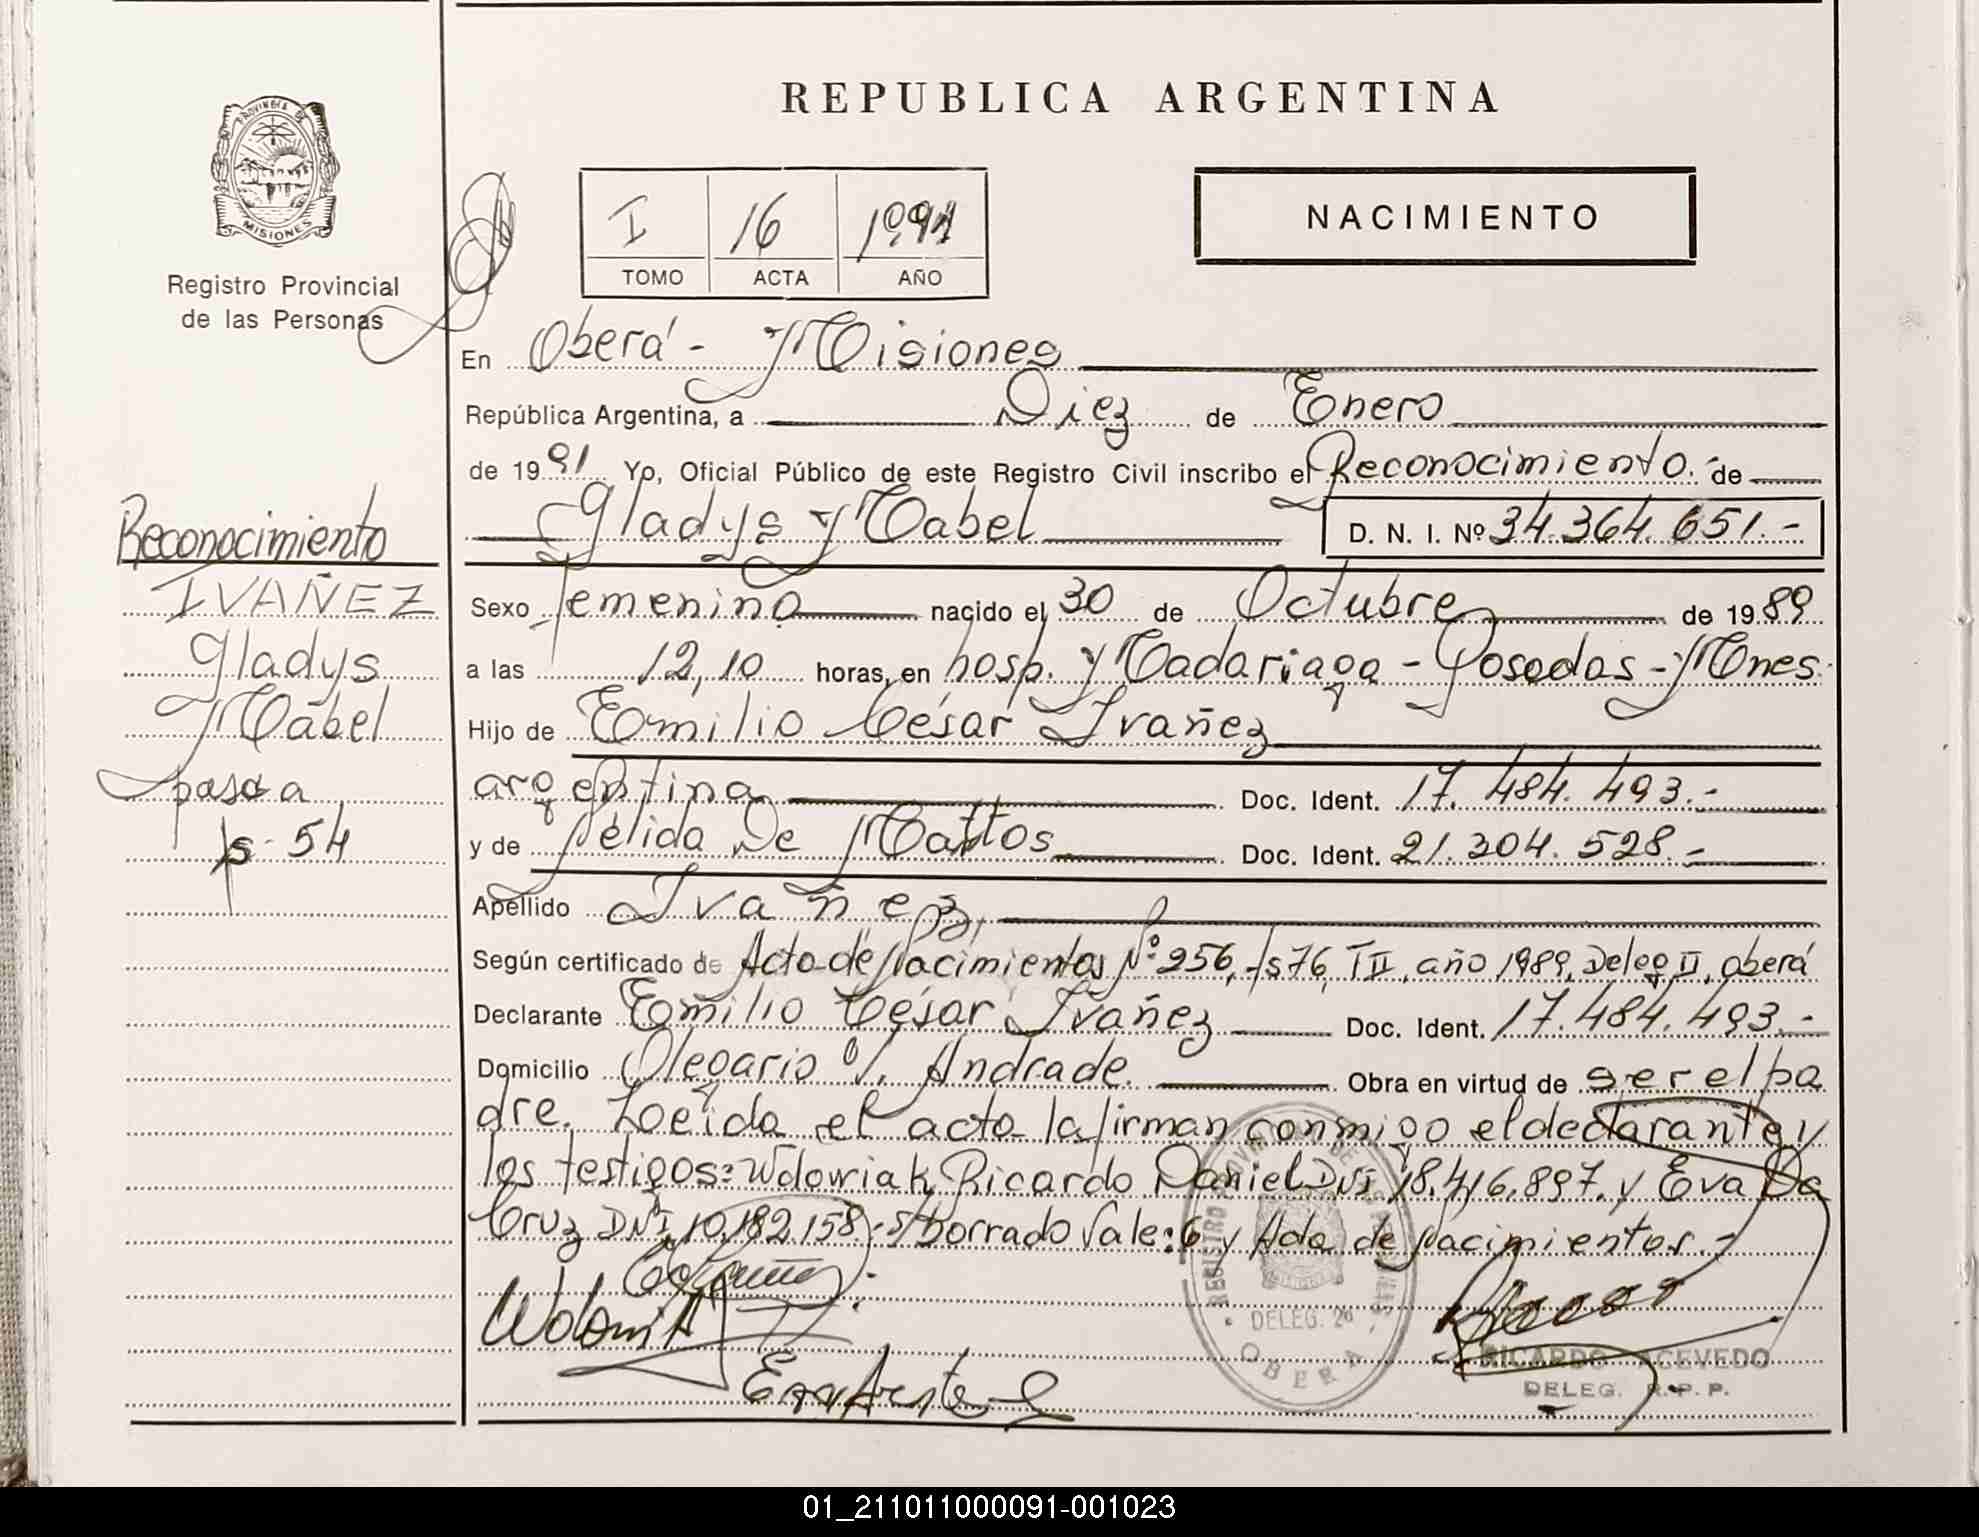 REPUBLICA ARGENTINA
PROVINCIA DE
MISIONES
Registro Provincial
de las Personas
I 16 1991
TOMO ACTA AÑO
NACIMIENTO
En Oberá - Misiones
República Argentina, a Diez de Enero
de 1991 Yo, Oficial Público de este Registro Civil inscribo el Reconocimiento de
Gladys Mabel D. N. I. Nº 34.364.651.-
Sexo femenino nacido el 30 de Octubre de 1989
a las 12,10 horas, en hosp. Madariaga - Posadas - Mnes.
Hijo de Emilio César Ivañez
argentina Doc. Ident. 17.484.493.-
y de Nélida De Mattos Doc. Ident. 21.304.528.-
Apellido Ivañez,
Según certificado de Acta de Nacimientos Nº 256, fs 76, TII, año 1989, Deleg II, oberá
Declarante Emilio César Ivañez Doc. Ident. 17.484.493.-
Domicilio Olegario V. Andrade. Obra en virtud de ser el pa
dre. Leeida el acta la firman conmigo el declarante y
los testigos: Wdowiak Ricardo Daniel DNI 18.416.897. y Eva Da
Cruz DNI 10.182.158.- s/borrado Vale: 6 y Acta de Nacimientos.-
Reconocimiento
IVAÑEZ
Gladys
Mabel
pasa a
fs. 54
REGISTRO PROVINCIAL DE LAS PERSONAS
DELEG. 2ª
OBERA
RICARDO ACEVEDO
DELEG. R.P.P.
01_211011000091-001023